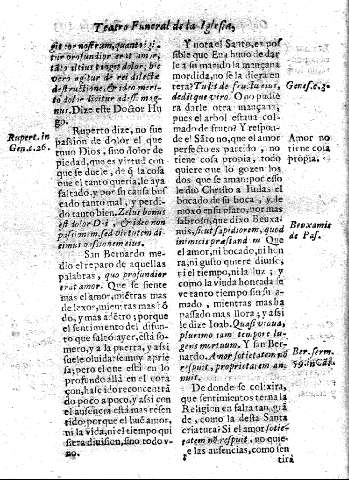 Teatro Funeral de la Iglesia,
gitur nostram, quanto igi-
tur profundiùs erit amor,
tur de rei dilectæ
destructione, & ideo meri-
to dolor dicitur esse mag-
nus. Dize este Doctor Hu
go.
Ruperto dize, no fue
passion de dolor el que
tuuo Dios, sino dolor de
piedad, que es virtud con
que se duele, de q̃ la cosa
que el tanto queria, le aya
faltado, y por su causa buf
cado tanto mal, y perdi-
do tanto bien. Zelus bonus
est dolor Dei, & ideo non
passionem, sed pietatem di-
cimus passionem eius.
San Bernardo me-
dio el reparo de aquellas
palabras, quo profundior
erat amor. Que se siente
mas el amor, mientras mas
lexos, mientras mas hõ
do, y mas adẽtro; porque
el sentimiento del difun-
to que saleò ayer, està so-
mero, y a la puerta, y assi
suele oluidarse muy aprie
sa; pero el que està en lo
profundo allà en el cora
con, hase ido reconcentrã
do poco a poco, y assi con
el ausencia està mas resen
tido: porque el buẽ amor,
ni la vida, ni el tiempo qui
siera diuision, sino todo v-
no.
Rupert. in
Gen. c. 26.
Y nota el Santo, es pos
sible que Eua huuo de dar
le a su marido la mançana
mordida, no se la diera en
tera? Tulit de fructu eius,
deditque viro. O no pudie
ra darle otra mançana,
pues el arbol estaua col-
mado de fruta? Y respon-
de el Sãto no, que el amor
perfecto es partido, no
tiene cosa propia, todo
quiere que lo gozen los
dos que se aman: por esso
le dio Christo a Iudas el
bocado de su boca, y le
mojò en su plato, por mas
sabroso, que dixo Beuxa-
mis,
Que
el amor, ni bocado, ni hon
ra, ni gusto quiere diuiso,
ni el tiempo, ni la luz; y
como la viuda honrada se
ve tanto tiempo sin su a-
mado, mientras mas ha
passado mas llora; y assi
le dize Ioab. Quasi viuua,
plurimo iam tempore lu-
gens mortuum. Y san Ber-
nardo. Amor societatem nõ
respuit, proprietatem an-
nuit.
De donde se colixira,
que sentimientos terná la
Religion en falta tan grã
de, como la desta Santa
criatura? Si el amor socie-
tatem nõ respuit, no quie-
re las ausencias, como sen
tirà
Genes. c. 3.
Amor no
tiene cosa
propia.
Beuxamis
de Pas.
Ber. serm.
59. in Cãt.